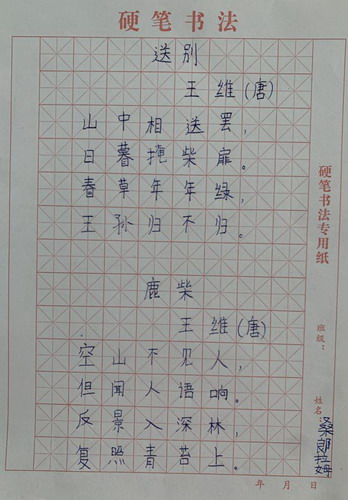 硬笔书法
送别
王维(唐)
山中相送罢,
日暮掩柴扉。
春草年年绿,
王孙归不归。
鹿柴
王维(唐)
空山不见人,
但闻人语响。
反景入深林,
复照青苔上。
硬笔书法专用纸
班级:
姓名 桑郎拉姆
年 月 日